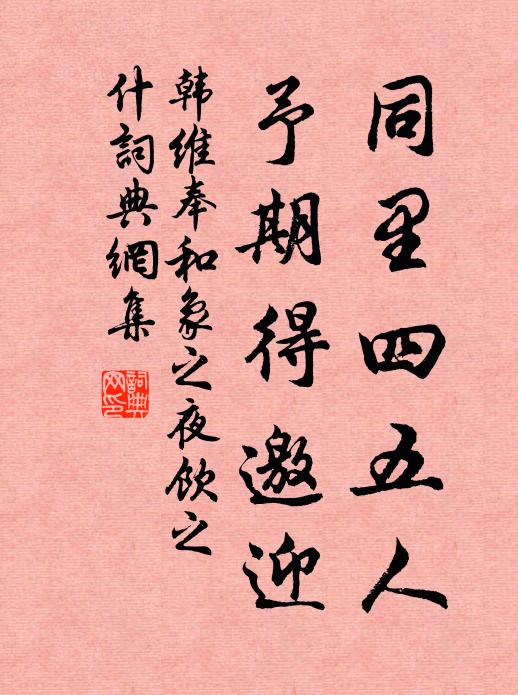 同里四五人
予期得邀迎
韩维奉和象之夜饮之
什詞典網集
詞典
网印